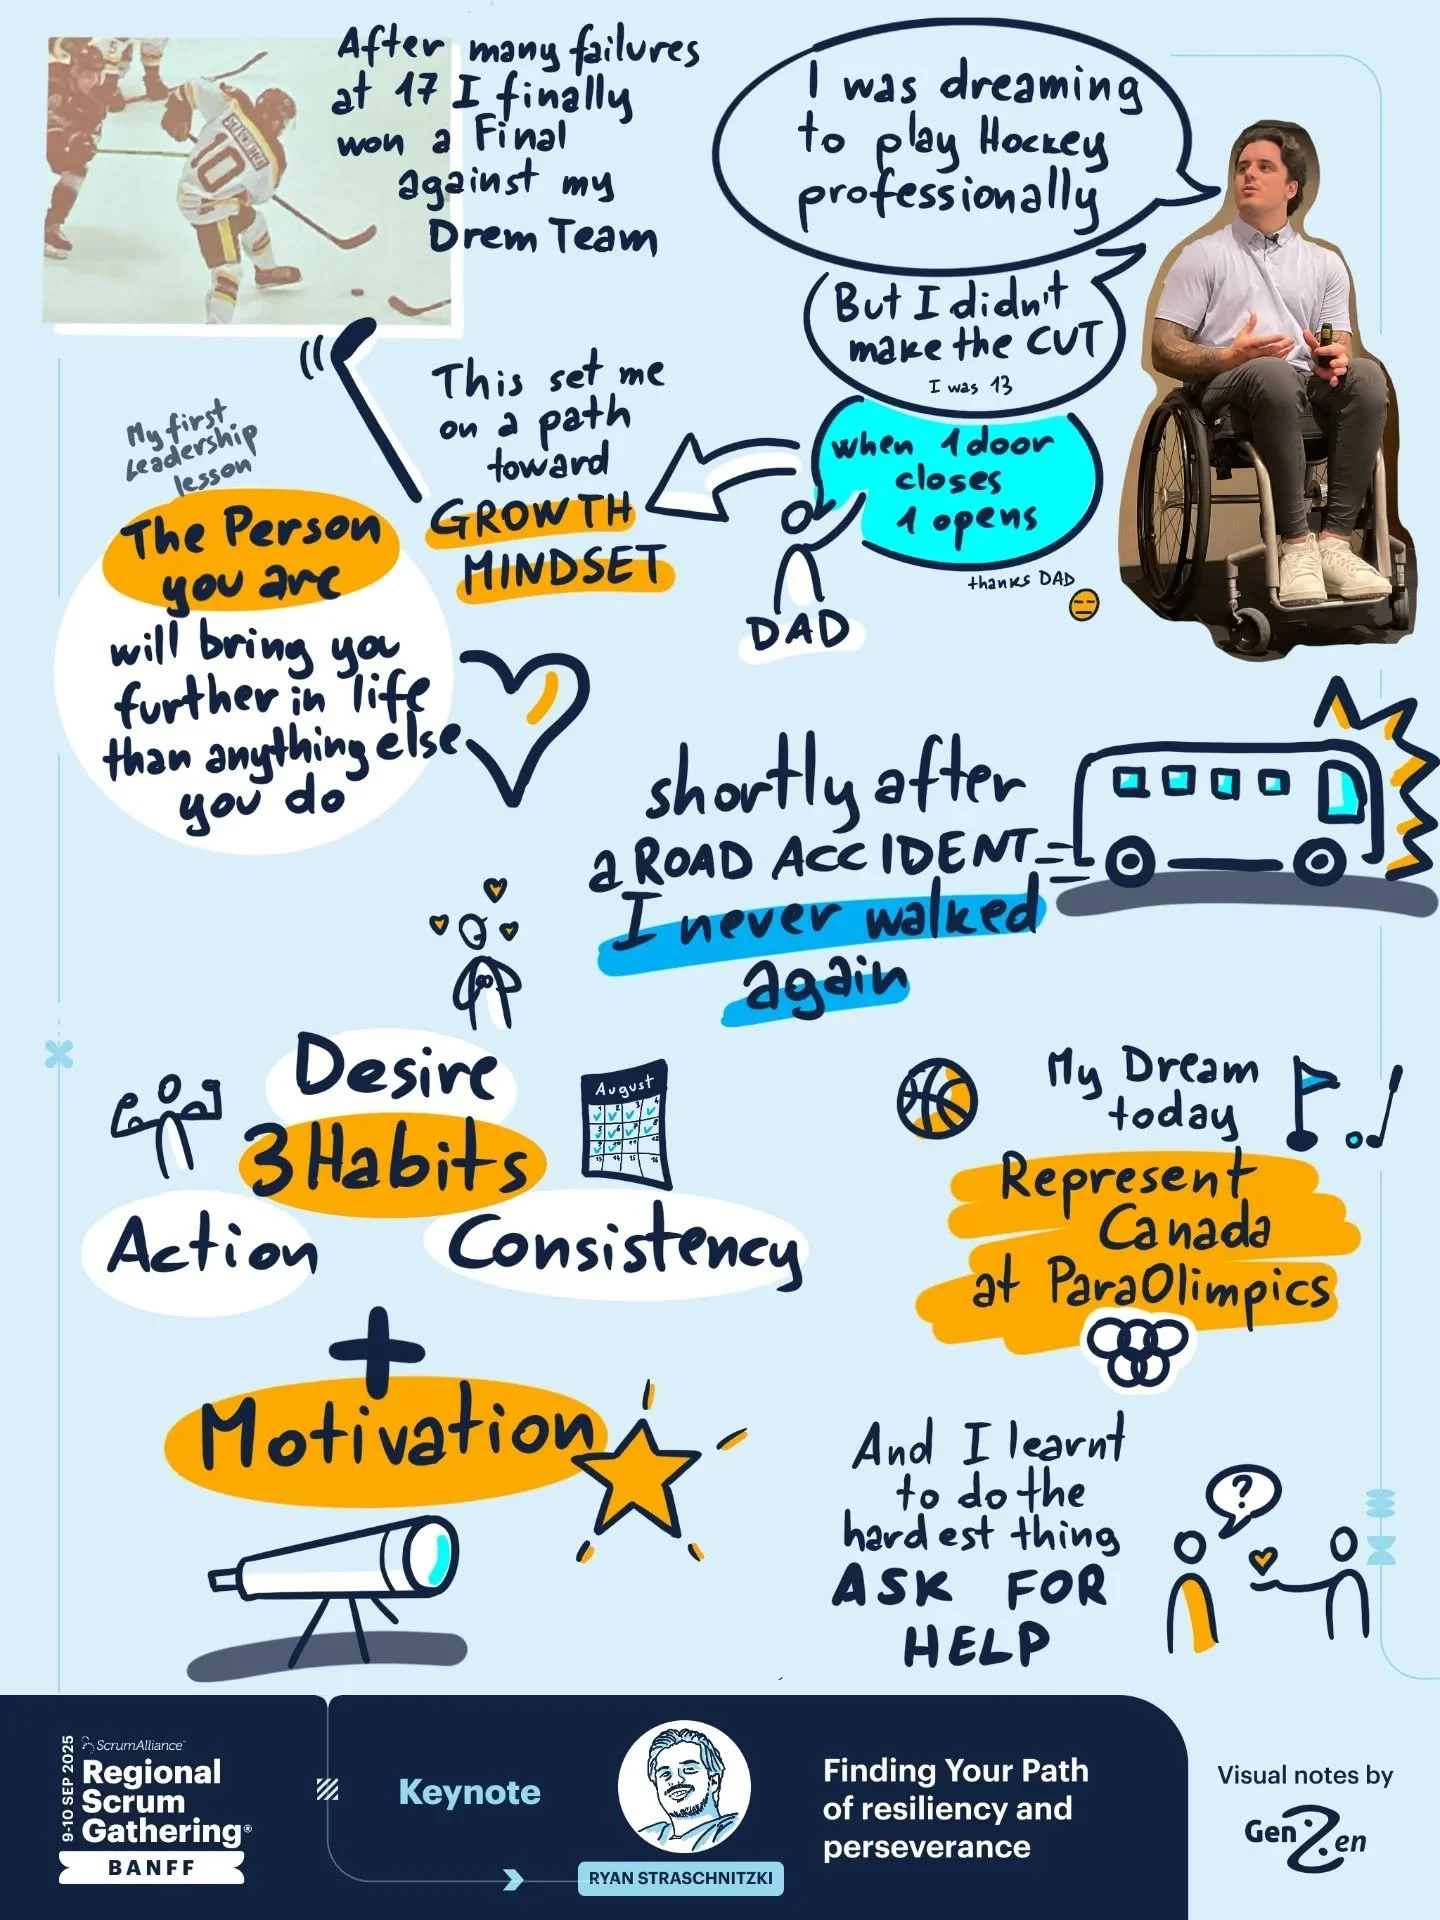 I was dreaming
to play Hockey
professionally
But I didn't
make the CUT
I was 13
when 1 door
closes
1 opens
thanks DAD
DAD
This set me
on a path
toward
GROWTH
MINDSET
After many failures
at 17 I finally
won a Final
against my
Drem Team
10
My first
Leadership
lesson
The Person
you are
will bring you
further in life
than anything else
you do
shortly after
a ROAD ACCIDENT
I never walked
again
Desire
3 Habits
Action
Consistency
August
1 2 3 4
5 6 7 8
13 14 15 16
Motivation
My Dream
today
Represent
Canada
at ParaOlimpics
And I learnt
to do the
hardest thing
ASK FOR
HELP
?
9-10 SEP 2025
ScrumAlliance
Regional
Scrum
Gathering®
BANFF
Keynote
RYAN STRASCHNITZKI
Finding Your Path
of resiliency and
perseverance
Visual notes by
GenZen